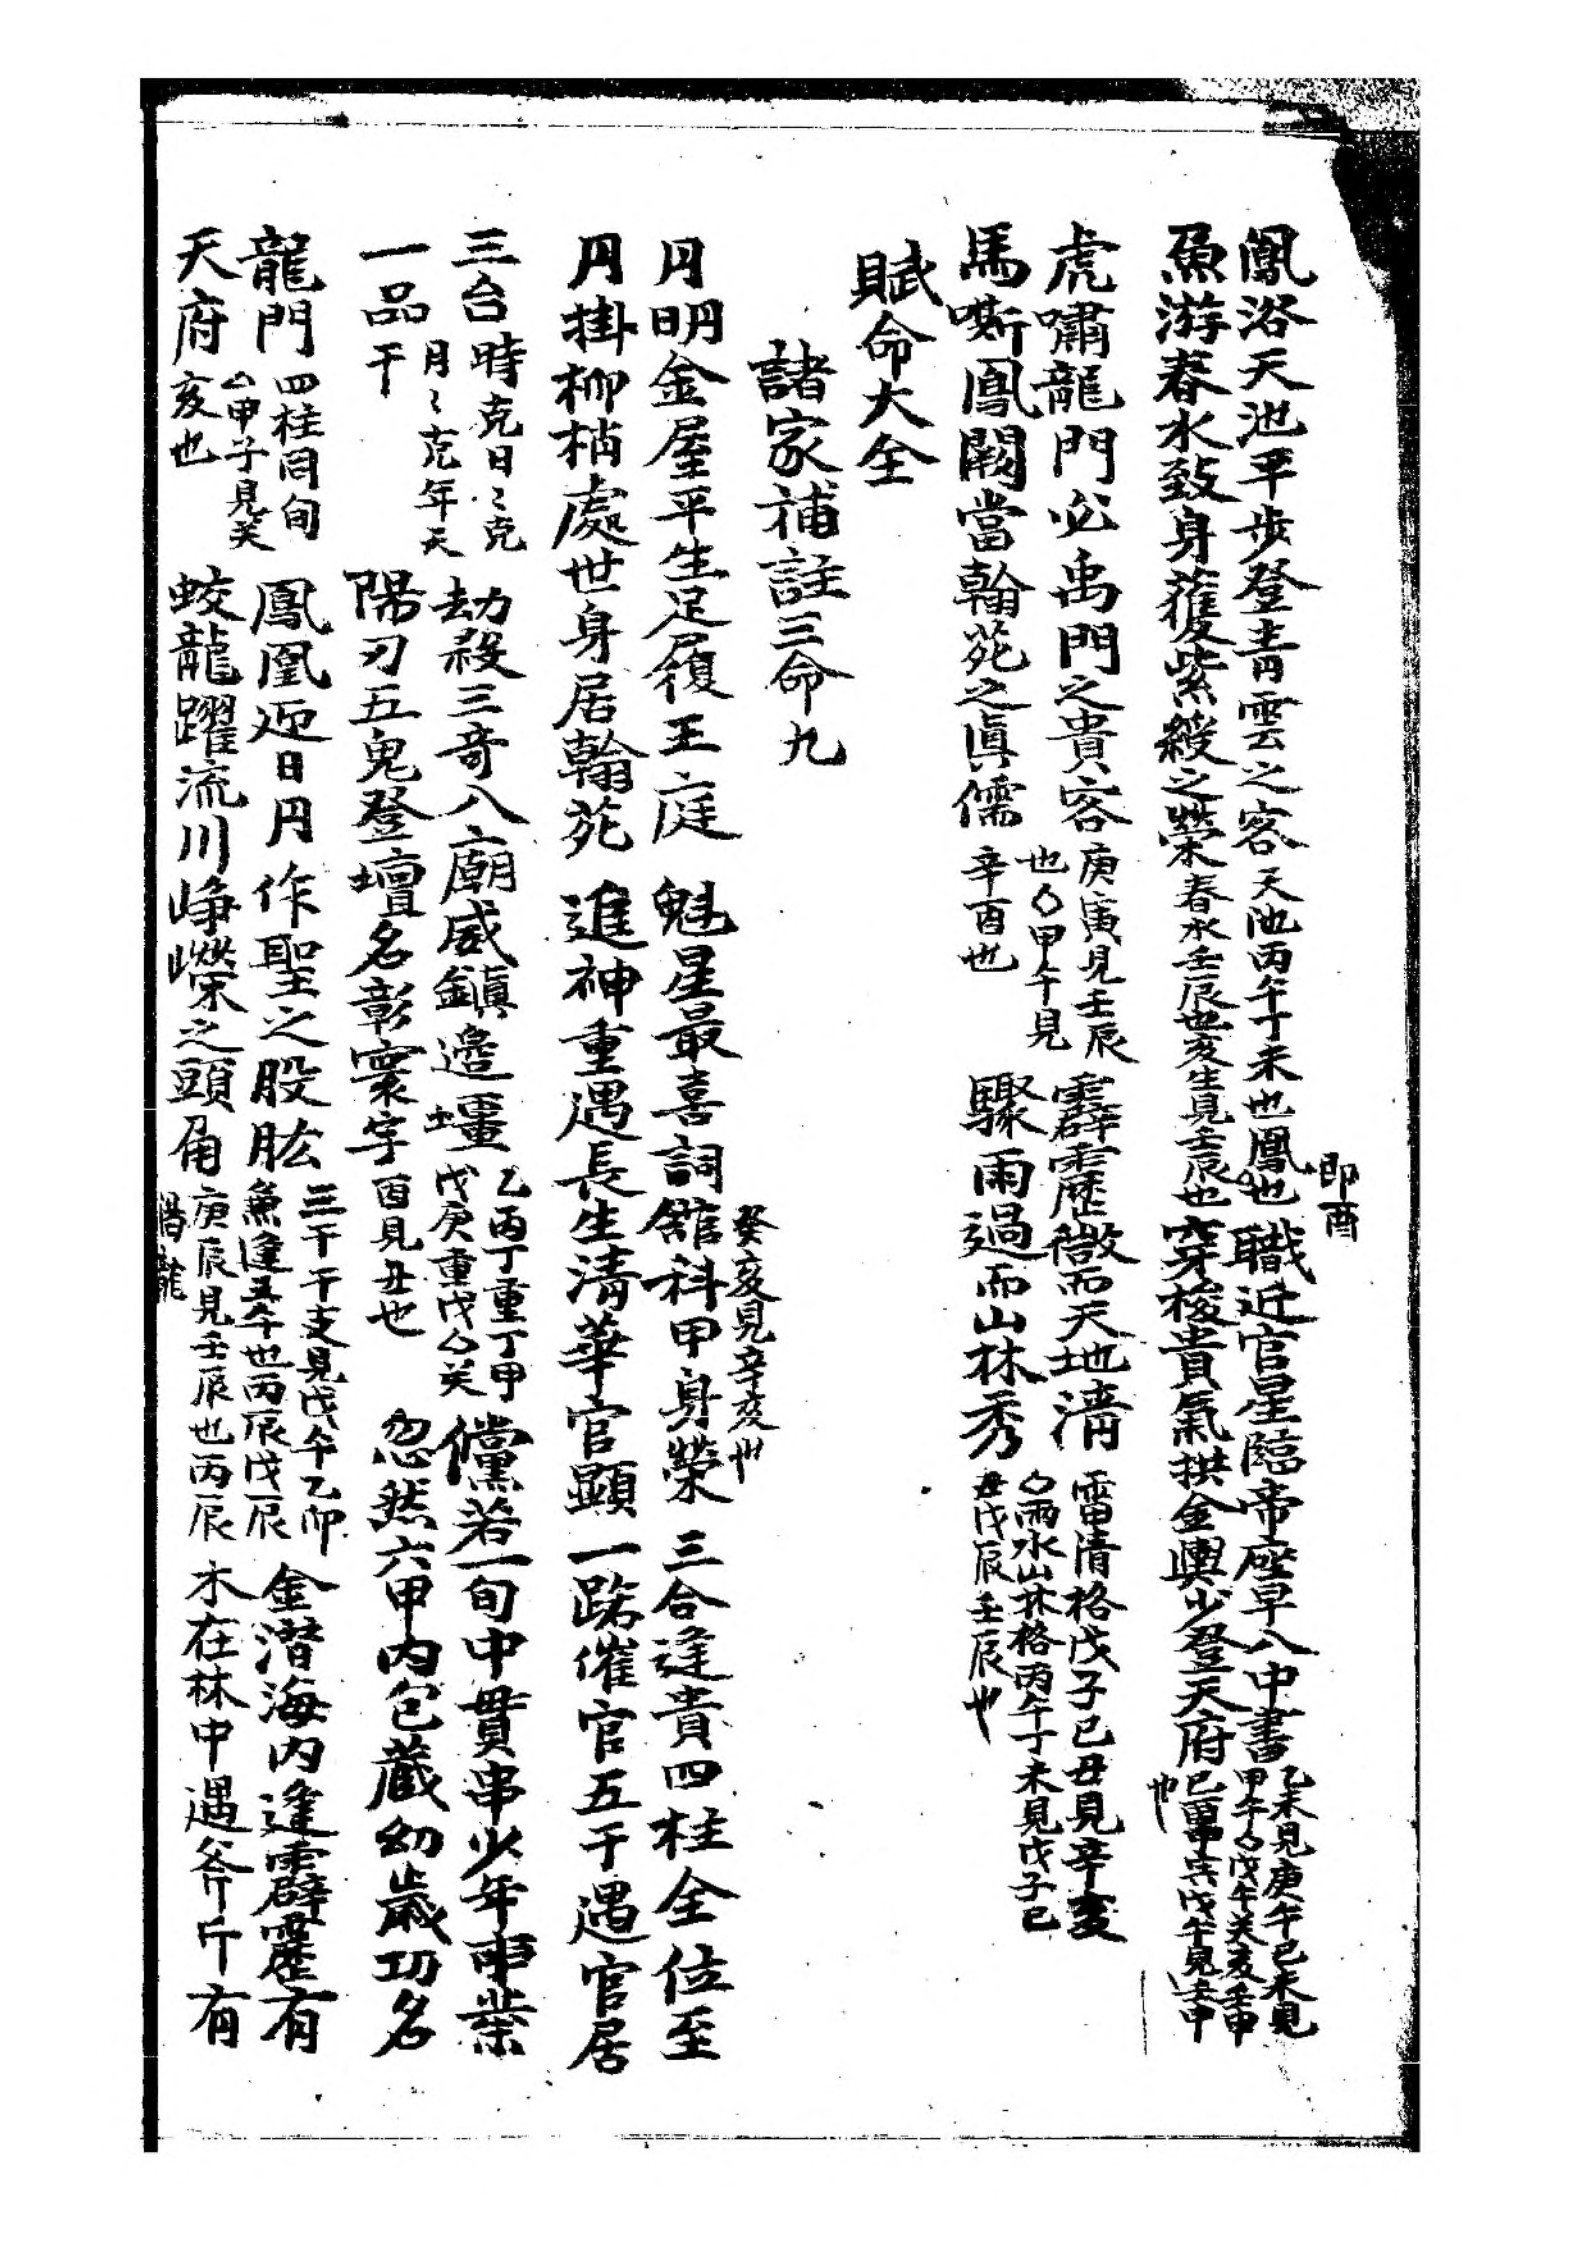 鳳浴天池平步登青雲之客天池丙午丁未也鳳即酉也職近官星臨帝座早入中書乙未見庚午己未見甲午○戊午癸亥壬申
魚游春水致身獲紫綬之榮春水壬辰也亥生見壬辰也穿梭貴氣拱金輿少登天府也
虎嘯龍門必禹門之貴客庚寅見壬辰也○甲午見辛酉也霹靂微而天地清雷清格戊子己丑見辛亥○雨水山林格丙午丁未見戊子己丑戊辰壬辰也
馬嘶鳳闕當翰苑之眞儒驟雨過而山林秀
賦命大全
諸家補註三命九
月明金屋平生足履王庭魁星最喜詞舘科甲身榮癸亥見辛亥也三合逢貴四柱全位至
月掛柳梢處世身居翰苑進神重遇長生清華官顯一路催官五干遇官居
三台時克日〻克月〻克年天干劫殺三奇入廟威鎭邊壃乙丙丁重丁甲戊庚重戊○癸酉見丑也儻若一旬中貫串少年事業
一品陽刃五鬼登壇名彰寰宇忽然六甲內包藏幼歲功名
龍門四柱同旬○甲子見癸亥也鳳凰迎日月作聖之股肱三干干支見戊午乙卯魚逢五午也丙辰戊辰庚辰見壬辰也丙辰金潛海內逢霹靂有
天府蛟龍躍流川崢嶸之頭角木在林中遇斧斤有